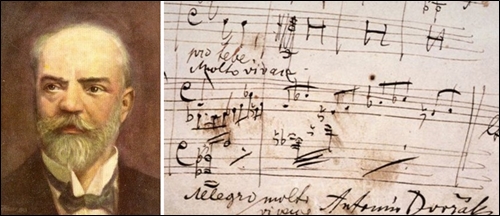 Molto vivace
Allegro molto
vivace Antonín Dvořák